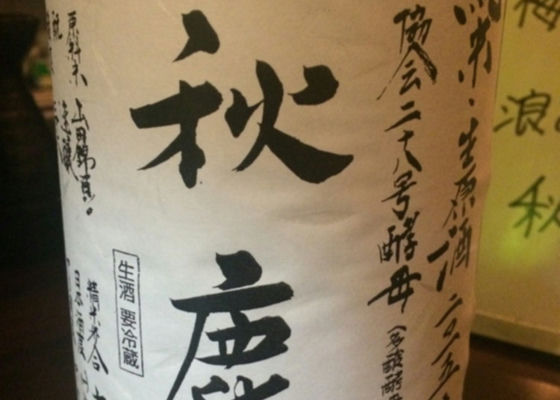 純米・生原酒 二〇一五
協会二十八号酵母
(多酸酵
秋鹿
生酒 要冷蔵
原料米 山田錦
精米歩合
日本酒度
梅
浪
秋